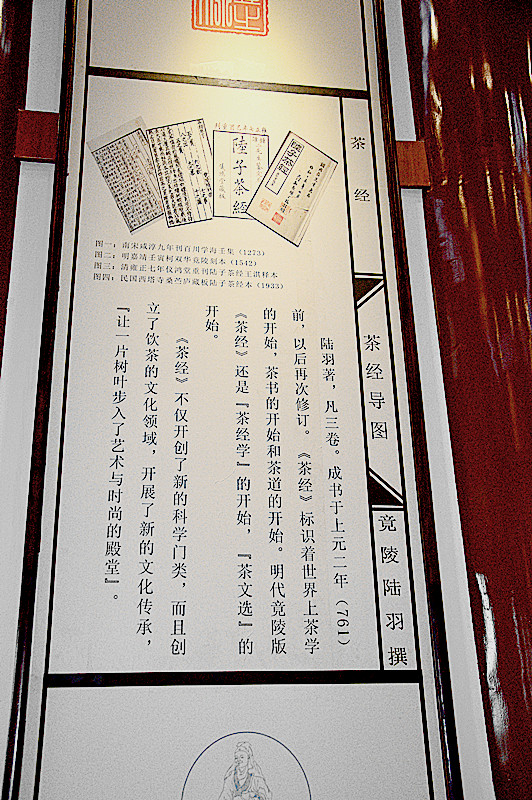 茶经
茶经导图
竟陵陆羽撰
陸子茶經
陸子茶經
图一：南宋咸淳九年刊百川学海壬集（1273）
图二：明嘉靖壬寅柯双华竟陵刻本（1542）
图三：清雍正七年仪鸿堂重刊陆子茶经王淇释本
图四：民国西塔寺桑苎庐藏板陆子茶经本（1933）
陆羽著，凡三卷。成书于上元二年（761）
前，以后再次修订。《茶经》标识着世界上茶学
的开始，茶书的开始和茶道的开始。明代竟陵版
《茶经》还是『茶经学』的开始，『茶文选』的
开始。
《茶经》不仅开创了新的科学门类，而且创
立了饮茶的文化领域，开展了新的文化传承，
『让一片树叶步入了艺术与时尚的殿堂』。